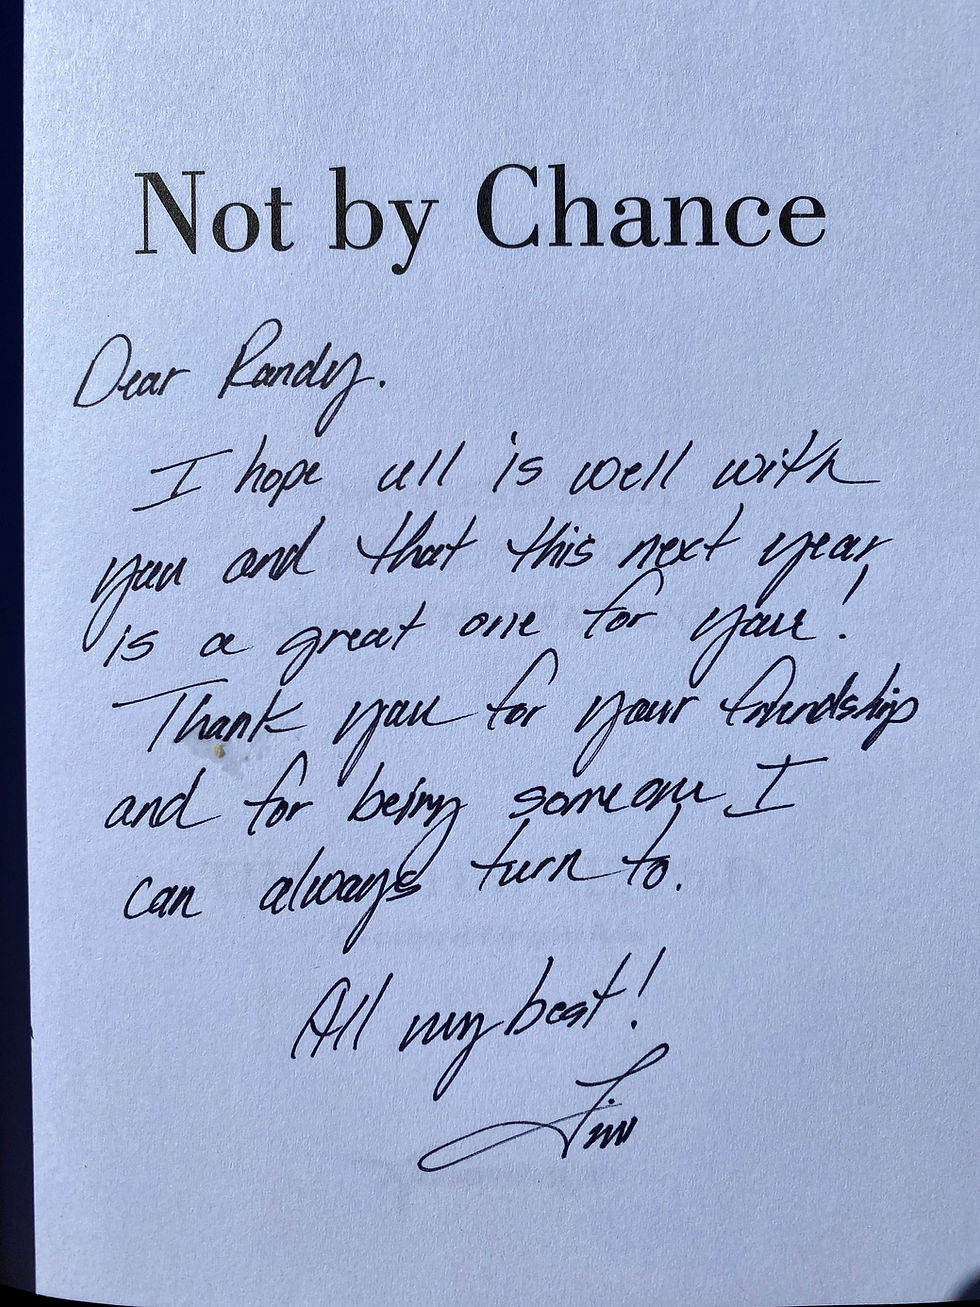 Not by Chance
Dear Randy.
I hope all is well with
you and that this next year,
is a great one for you!
Thank you for your friendship
and for being someone I
can always turn to.
All my best!
Tim